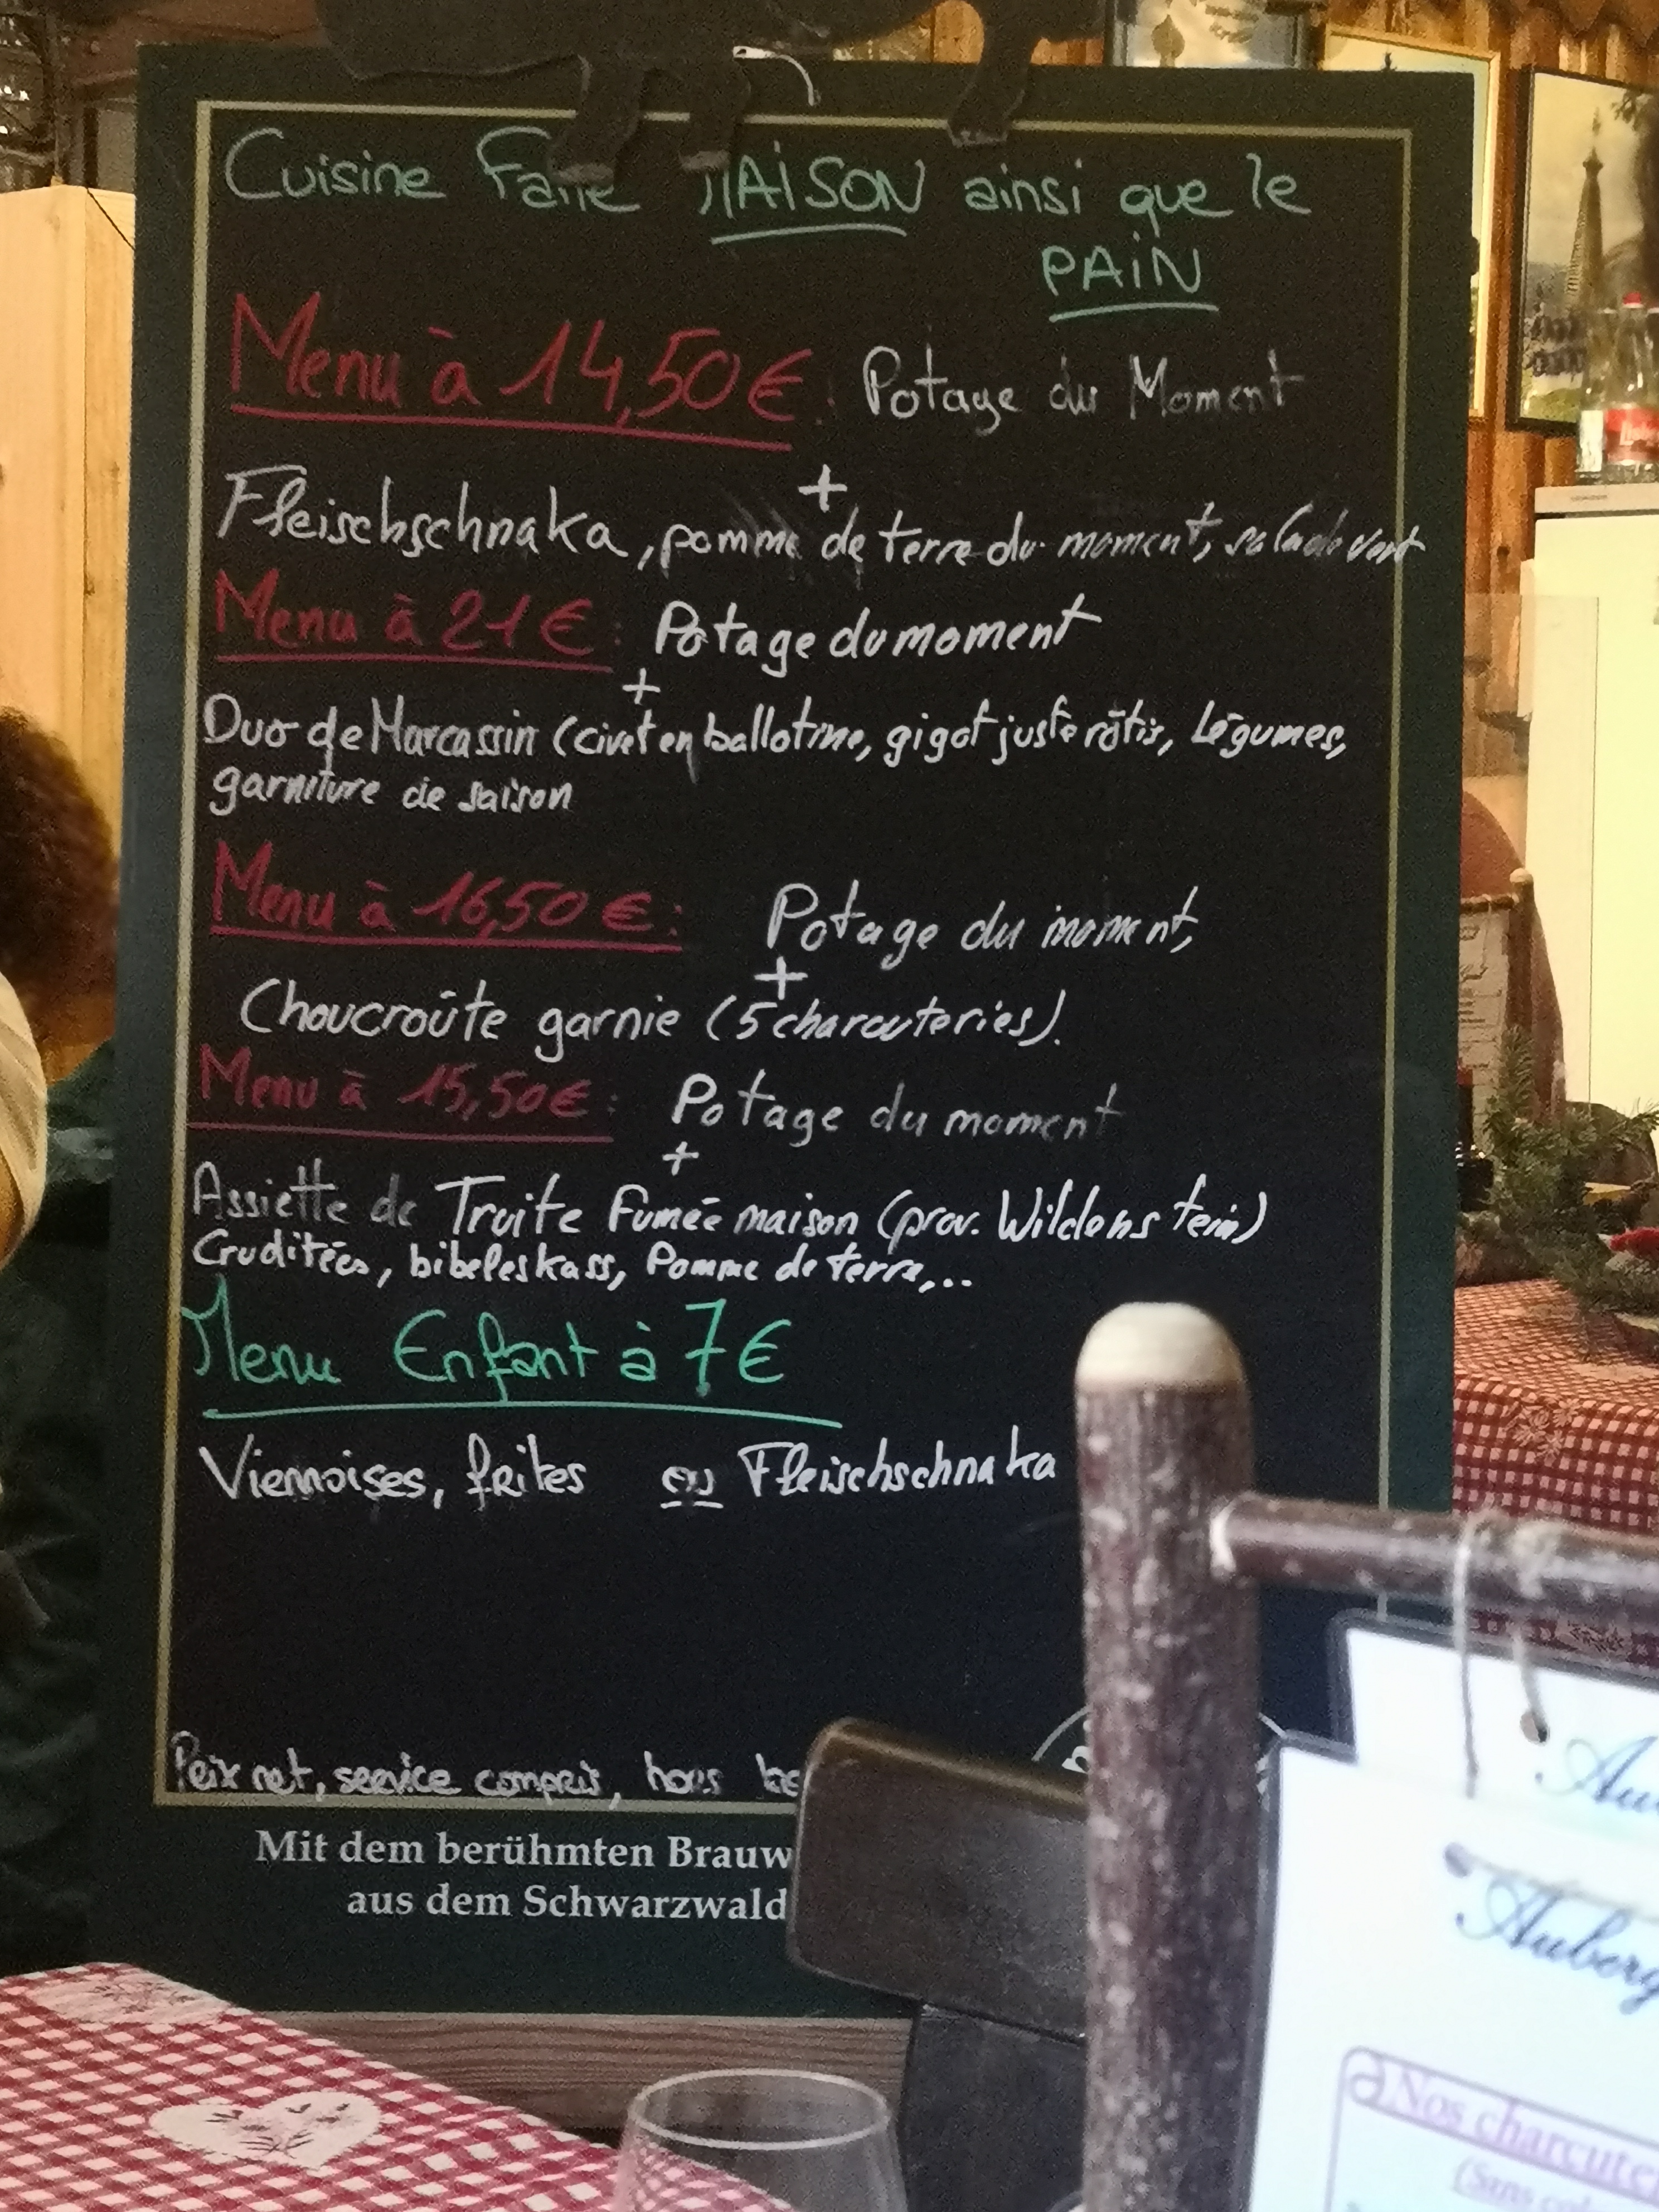 Cuisine Faite MAISON ainsi que le
PAIN
Menu à 14,50€: Potage du Moment
+
Fleischschnaka, pomme de terre du moment, salade vert
Menu à 21€: Potage du moment
+
Duo de Marcassin (civet en ballotine, gigot juste rôtis, Légumes,
garniture de saison
Menu à 16,50€: Potage du moment,
+
Choucroûte garnie (5 charcuteries).
Menu à 15,50€: Potage du moment
+
Assiette de Truite Fumée maison (prov. Wildenstein)
Cruditées, bibeleskass, Pomme de terre,...
Menu Enfant à 7€
Viennoises, frites ou Fleischschnaka
Prix net, service compris, hors
Mit dem berühmten Brauw
aus dem Schwarzwald
Au
Auberg
Nos charcute
(Sans